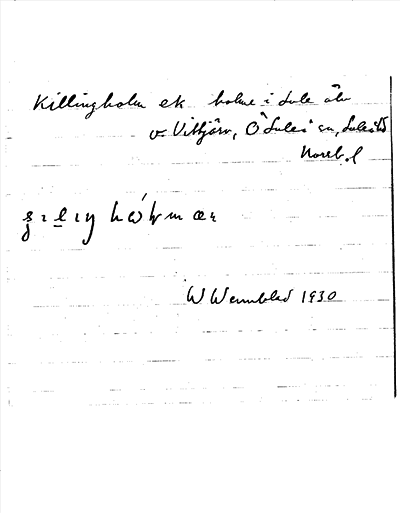 Killingholm ek holme i Lule älv
v Vittjärv, Ö Luleå sn,
Norrb. l
W Wennblad 1930